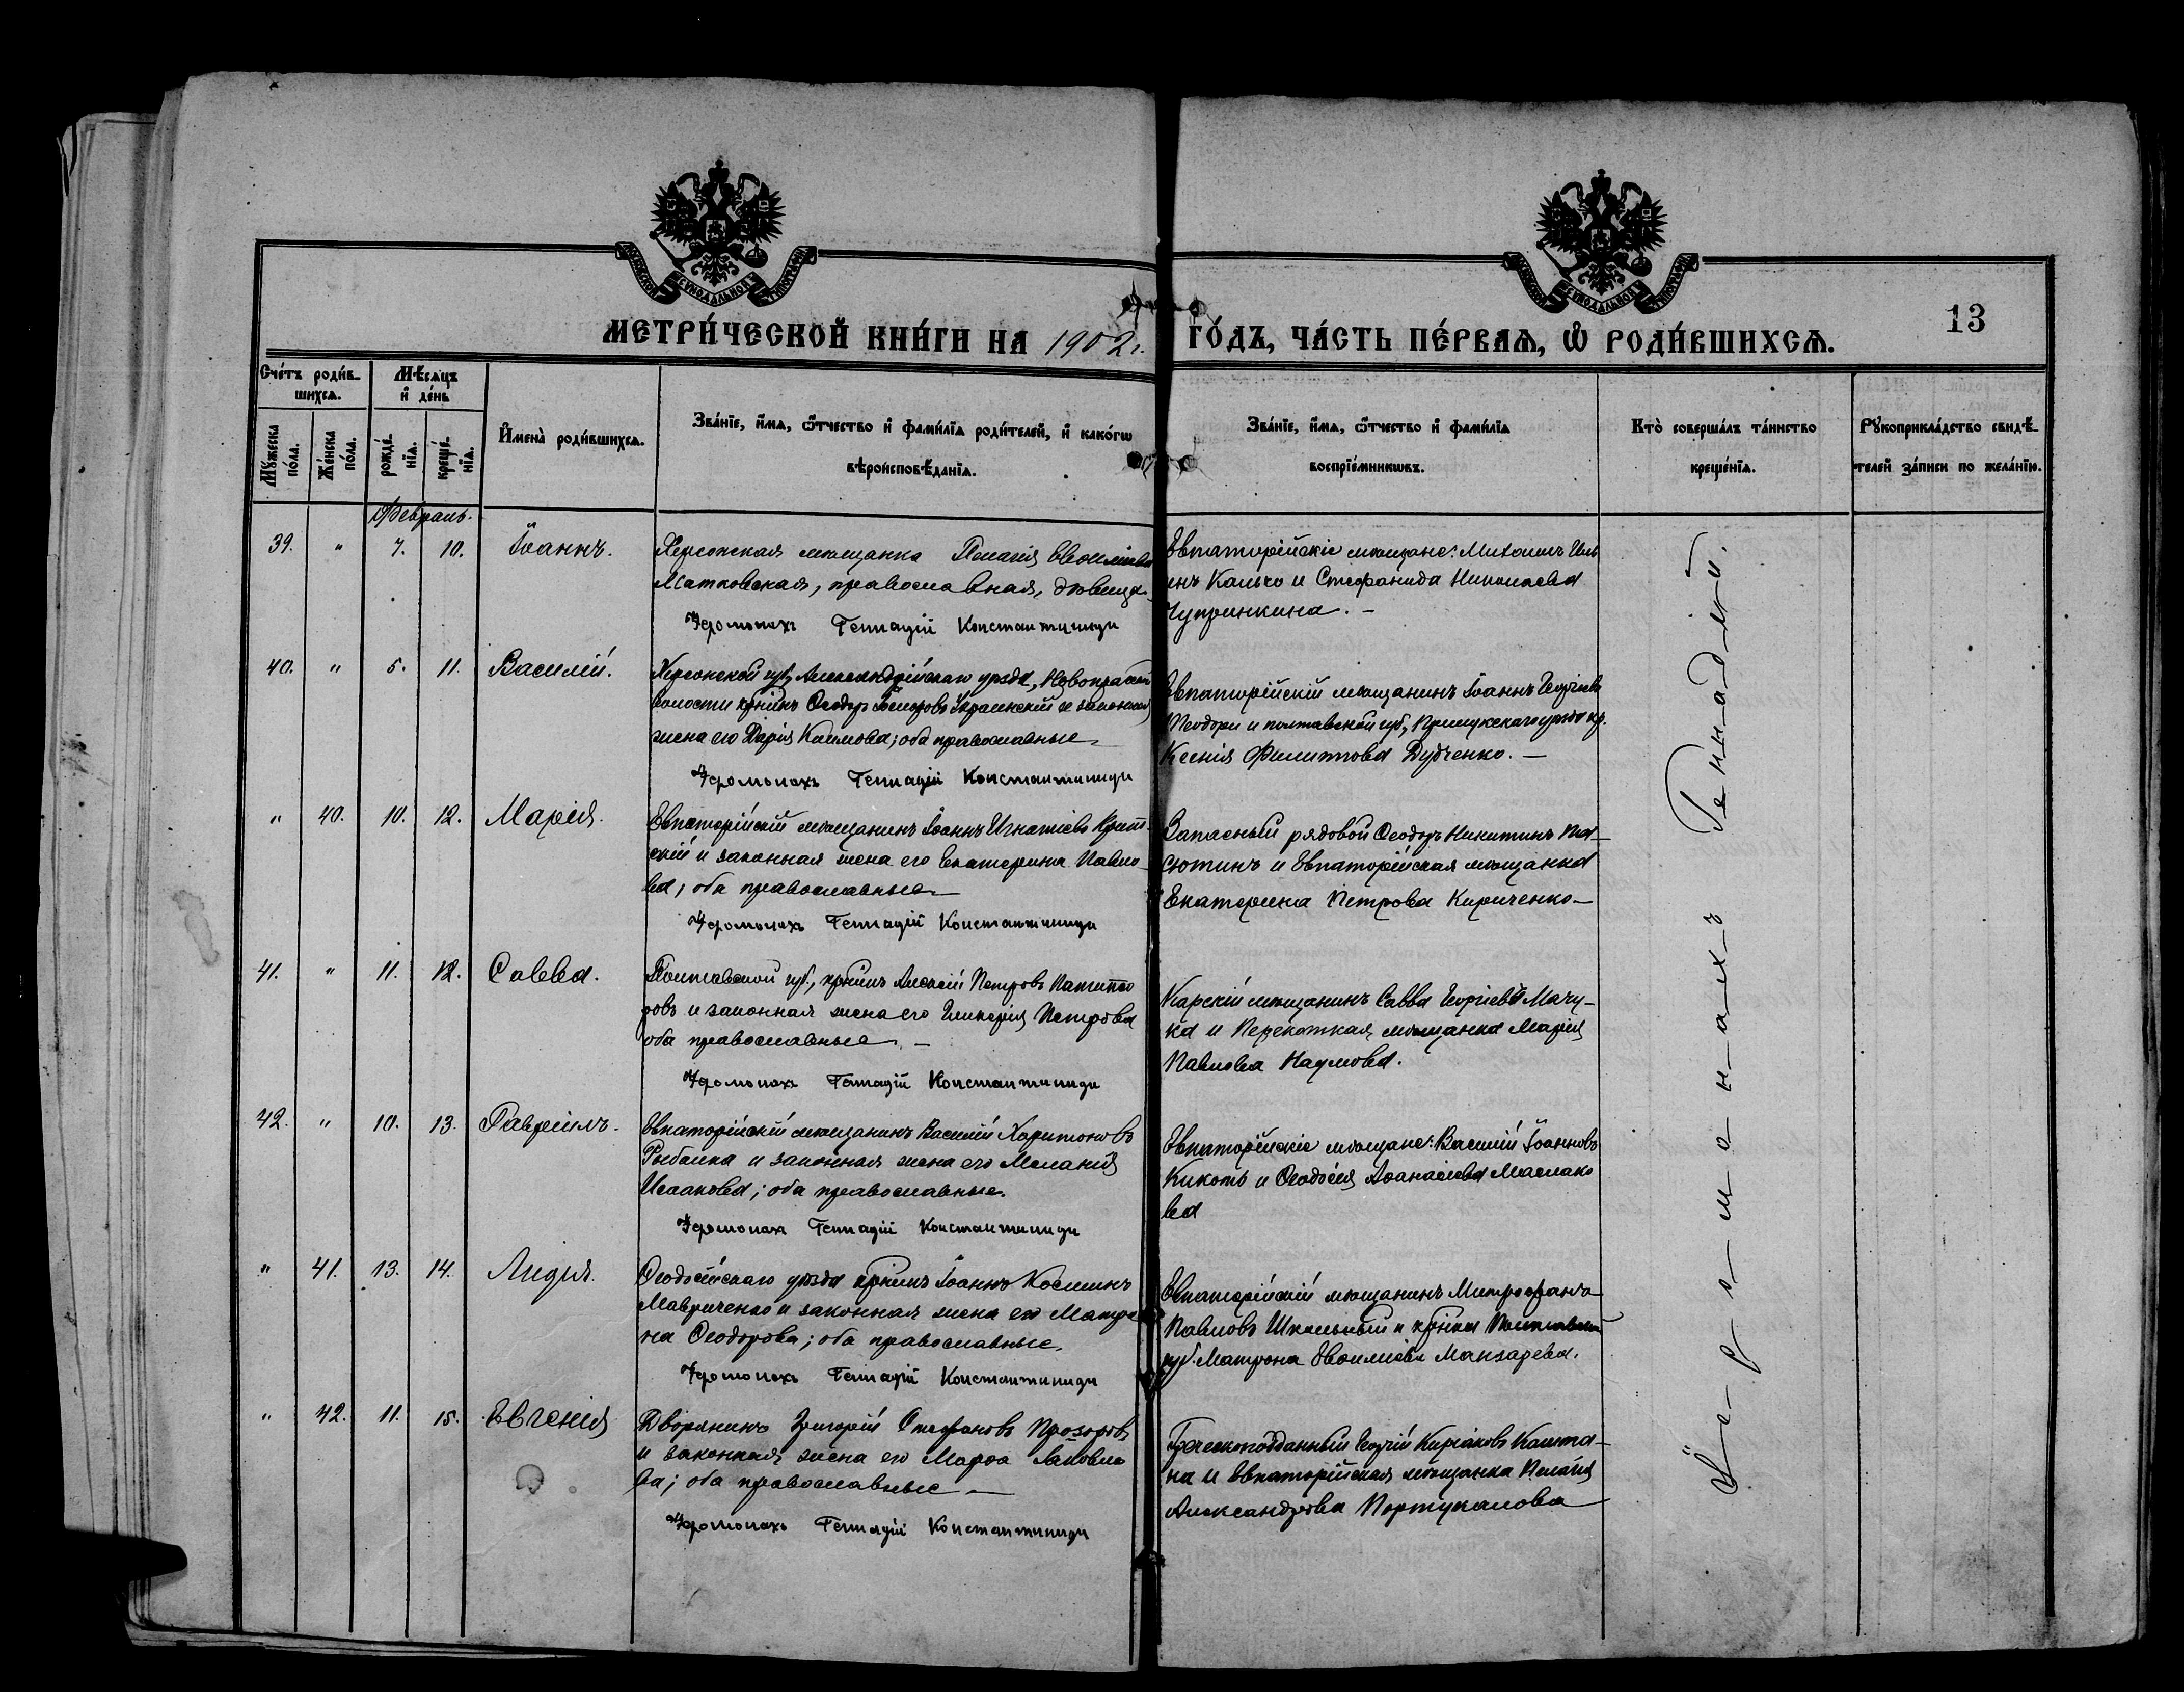 МОСКОВСКОЙ СѴНОДАЛЬНОЙ ТИПОГРАФІИ
МОСКОВСКОЙ СѴНОДАЛЬНОЙ ТИПОГРАФІИ
МЕТРИ́ЧЕСКОЙ КНИ́ГИ НА 1902 г. ГО́ДЪ, ЧА́СТЬ ПЕ́РВАѦ, Ѡ҆ РОДИ́ВШИХСѦ.
13
Сче́тъ роди́в-
шихсѧ.
Мѣ́сѧцъ
и҆ де́нь
Мꙋ́жеска
по́ла.
Же́нска
по́ла.
рожде́-
нїѧ.
креще́-
нїѧ.
И҆мена̀ роди́вшихсѧ.
Зва́нїе, и҆́мѧ, ѻ҆́тчество и҆ фами́лїѧ роди́телей, и҆ како́гѡ
вѣроисповѣ́данїѧ.
Зва́нїе, и҆́мѧ, ѻ҆́тчество и҆ фами́лїѧ
воспрїе́мникѡвъ.
Кто̀ соверша́лъ та́инство
креще́нїѧ.
Рꙋкоприкла́дство свидѣ́-
телей за́писи по жела́нїю.
Февраль.
39. " 7. 10. Іоаннъ.
Херсонская мѣщанка Пелагія Евѳиміева
Матковская, православная, дѣвица
Іеромонахъ Геннадій Константиниди
Евпаторійскіе мѣщане: Михаилъ Иль
инъ и Стефанида Николаева
Чупринкина. -
40. " 5. 11. Василій.
Херсонской губ, Александрійскаго уѣзда,
волости крнинъ Ѳеодоръ Украинскій и законная
жена его Дарія Климова; оба православные
Іеромонахъ Геннадій Константиниди
Евпаторійскій мѣщанинъ Іоаннъ Георгіевъ
и полтавской губ, уѣзда кр.
Ксенія Филиппова Дудченко. -
" 40. 10. 12. Марія.
Евпаторійскій мѣщанинъ Іоаннъ Игнатіевъ
скій и законная жена его Екатерина Павло-
ва; оба православные
Іеромонахъ Геннадій Константиниди
Запасный рядовой Ѳеодоръ Никитинъ Па-
сютинъ и Евпаторійская мѣщанка
Екатерина Петрова Кириченко
41. " 11. 12. Савва.
Полтавской губ., крнинъ Алексій Петровъ
ровъ и законная жена его Гликерія Петрова
оба православные. -
Іеромонахъ Геннадій Константиниди
Карскій мѣщанинъ Савва Георгіевъ Мачу-
ка и Перекопская мѣщанка Марія
Павлова Наумова.
42. " 10. 13. Гавріилъ.
Евпаторійскій мѣщанинъ Василій Харитоновъ
Рыбалка и законная жена его Меланія
Исаакова; оба православные.
Іеромонахъ Геннадій Константиниди
Евпаторійскіе мѣщане: Василій Іоанновъ
Кикоть и Ѳеодосія Аѳанасіева Маслако
ва
" 41. 13. 14. Лидія.
Ѳеодосійскаго уѣзда крнинъ Іоаннъ Косминъ
Мавриченко и законная жена его Матро
на Ѳеодорова; оба православные.
Іеромонахъ Геннадій Константиниди
Евпаторійскій мѣщанинъ Митрофанъ
Павловъ Школьный и крнка Полтавской
губ. Матрона Евѳиміева Макзарева.
" 42. 11. 15. Евгенія
Дворянинъ Григорій Стефановъ Прозоровъ
и законная жена его Марѳа Іаковле
ва; оба православные
Іеромонахъ Геннадій Константиниди
Греческоподданный Георгій Киріаковъ Кашта-
на и Евпаторійская мѣщанка Пелагія
Александрова Портупалова
Іе-р-о-м-о-н-а-х-ъ Геннадій.